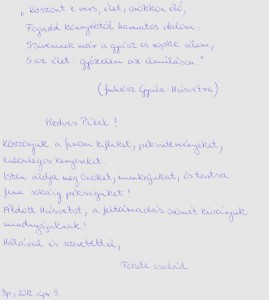 „Köszönt e vers, élet, örökkön élő,
Fogadd könnyektől harmatos dalom.
Szívemnek már a gyász is röpke álom,
S az élet: győzelem az elmúláson."
(Juhász Gyula: Húsvétra)
Kedves Pékek!
Köszönjük a finom kifliket, péksüteményeket,
különleges kenyereket.
Isten áldja meg Önöket, munkájukat, és tartsa
fenn sokáig pékségüket!
Áldott Húsvétot, a feltámadás örömét kívánjuk
mindnyájuknak!
Hálával és szeretettel,
Fekete család
Bp., 2012. ápr. 9.